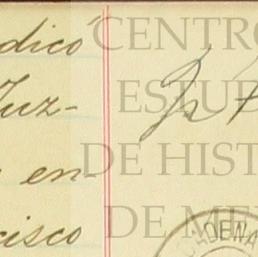 dico
Juz-
en-
cisco
CENTRO
ESTU
DE HIST
DE ME
DENA